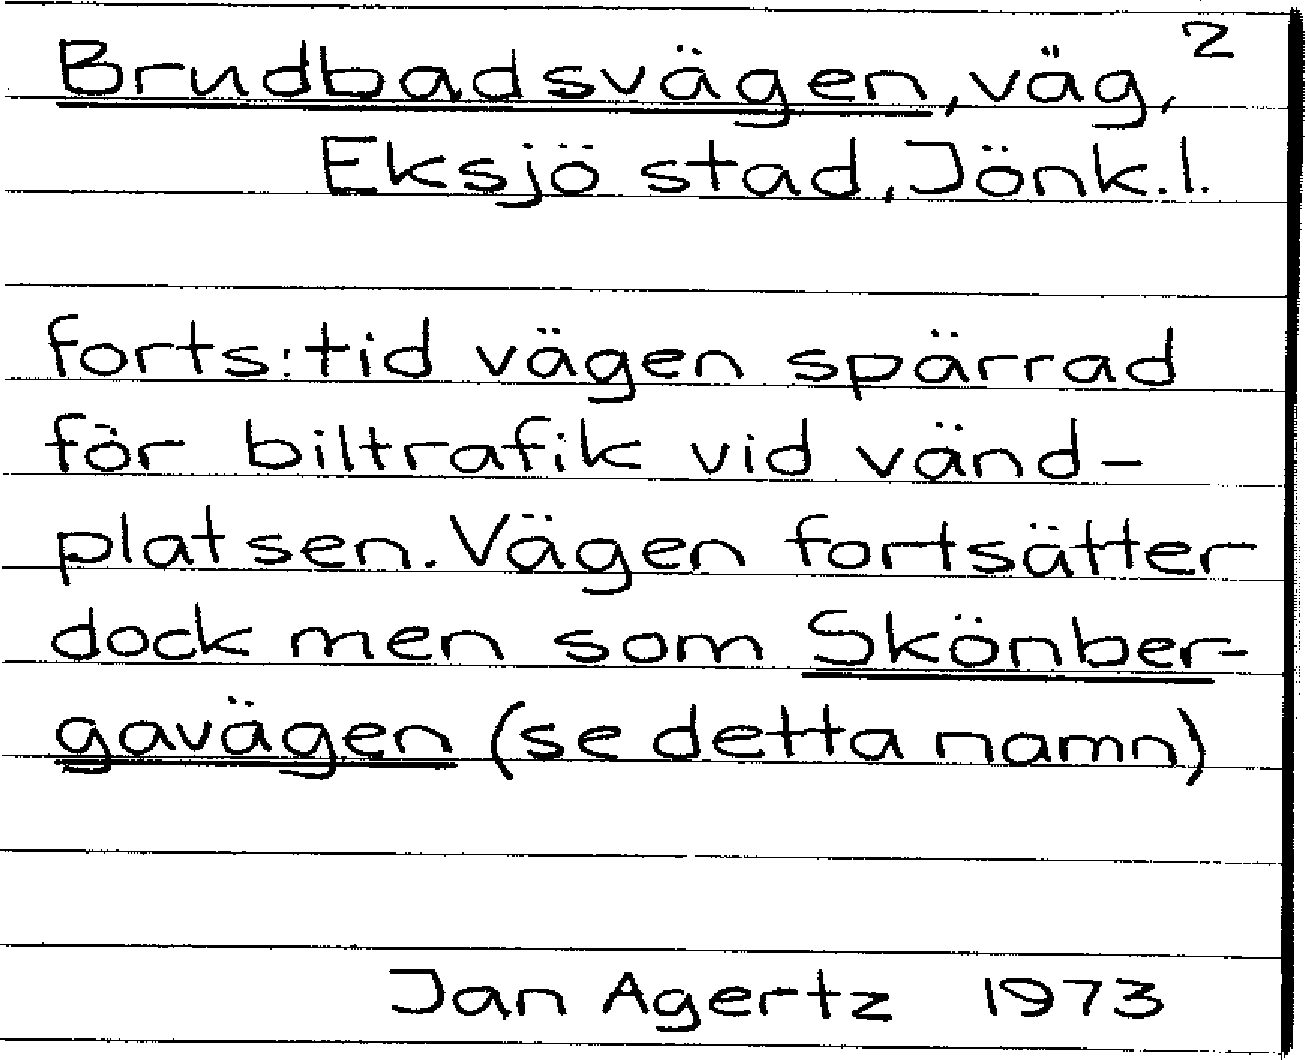 2
Brudbadsvägen, väg,
Eksjö stad, Jönk. l.
forts: tid vägen spärrad
för biltrafik vid vänd-
platsen. Vägen fortsätter
dock men som Skönber-
gavägen (se detta namn)
Jan Agertz 1973